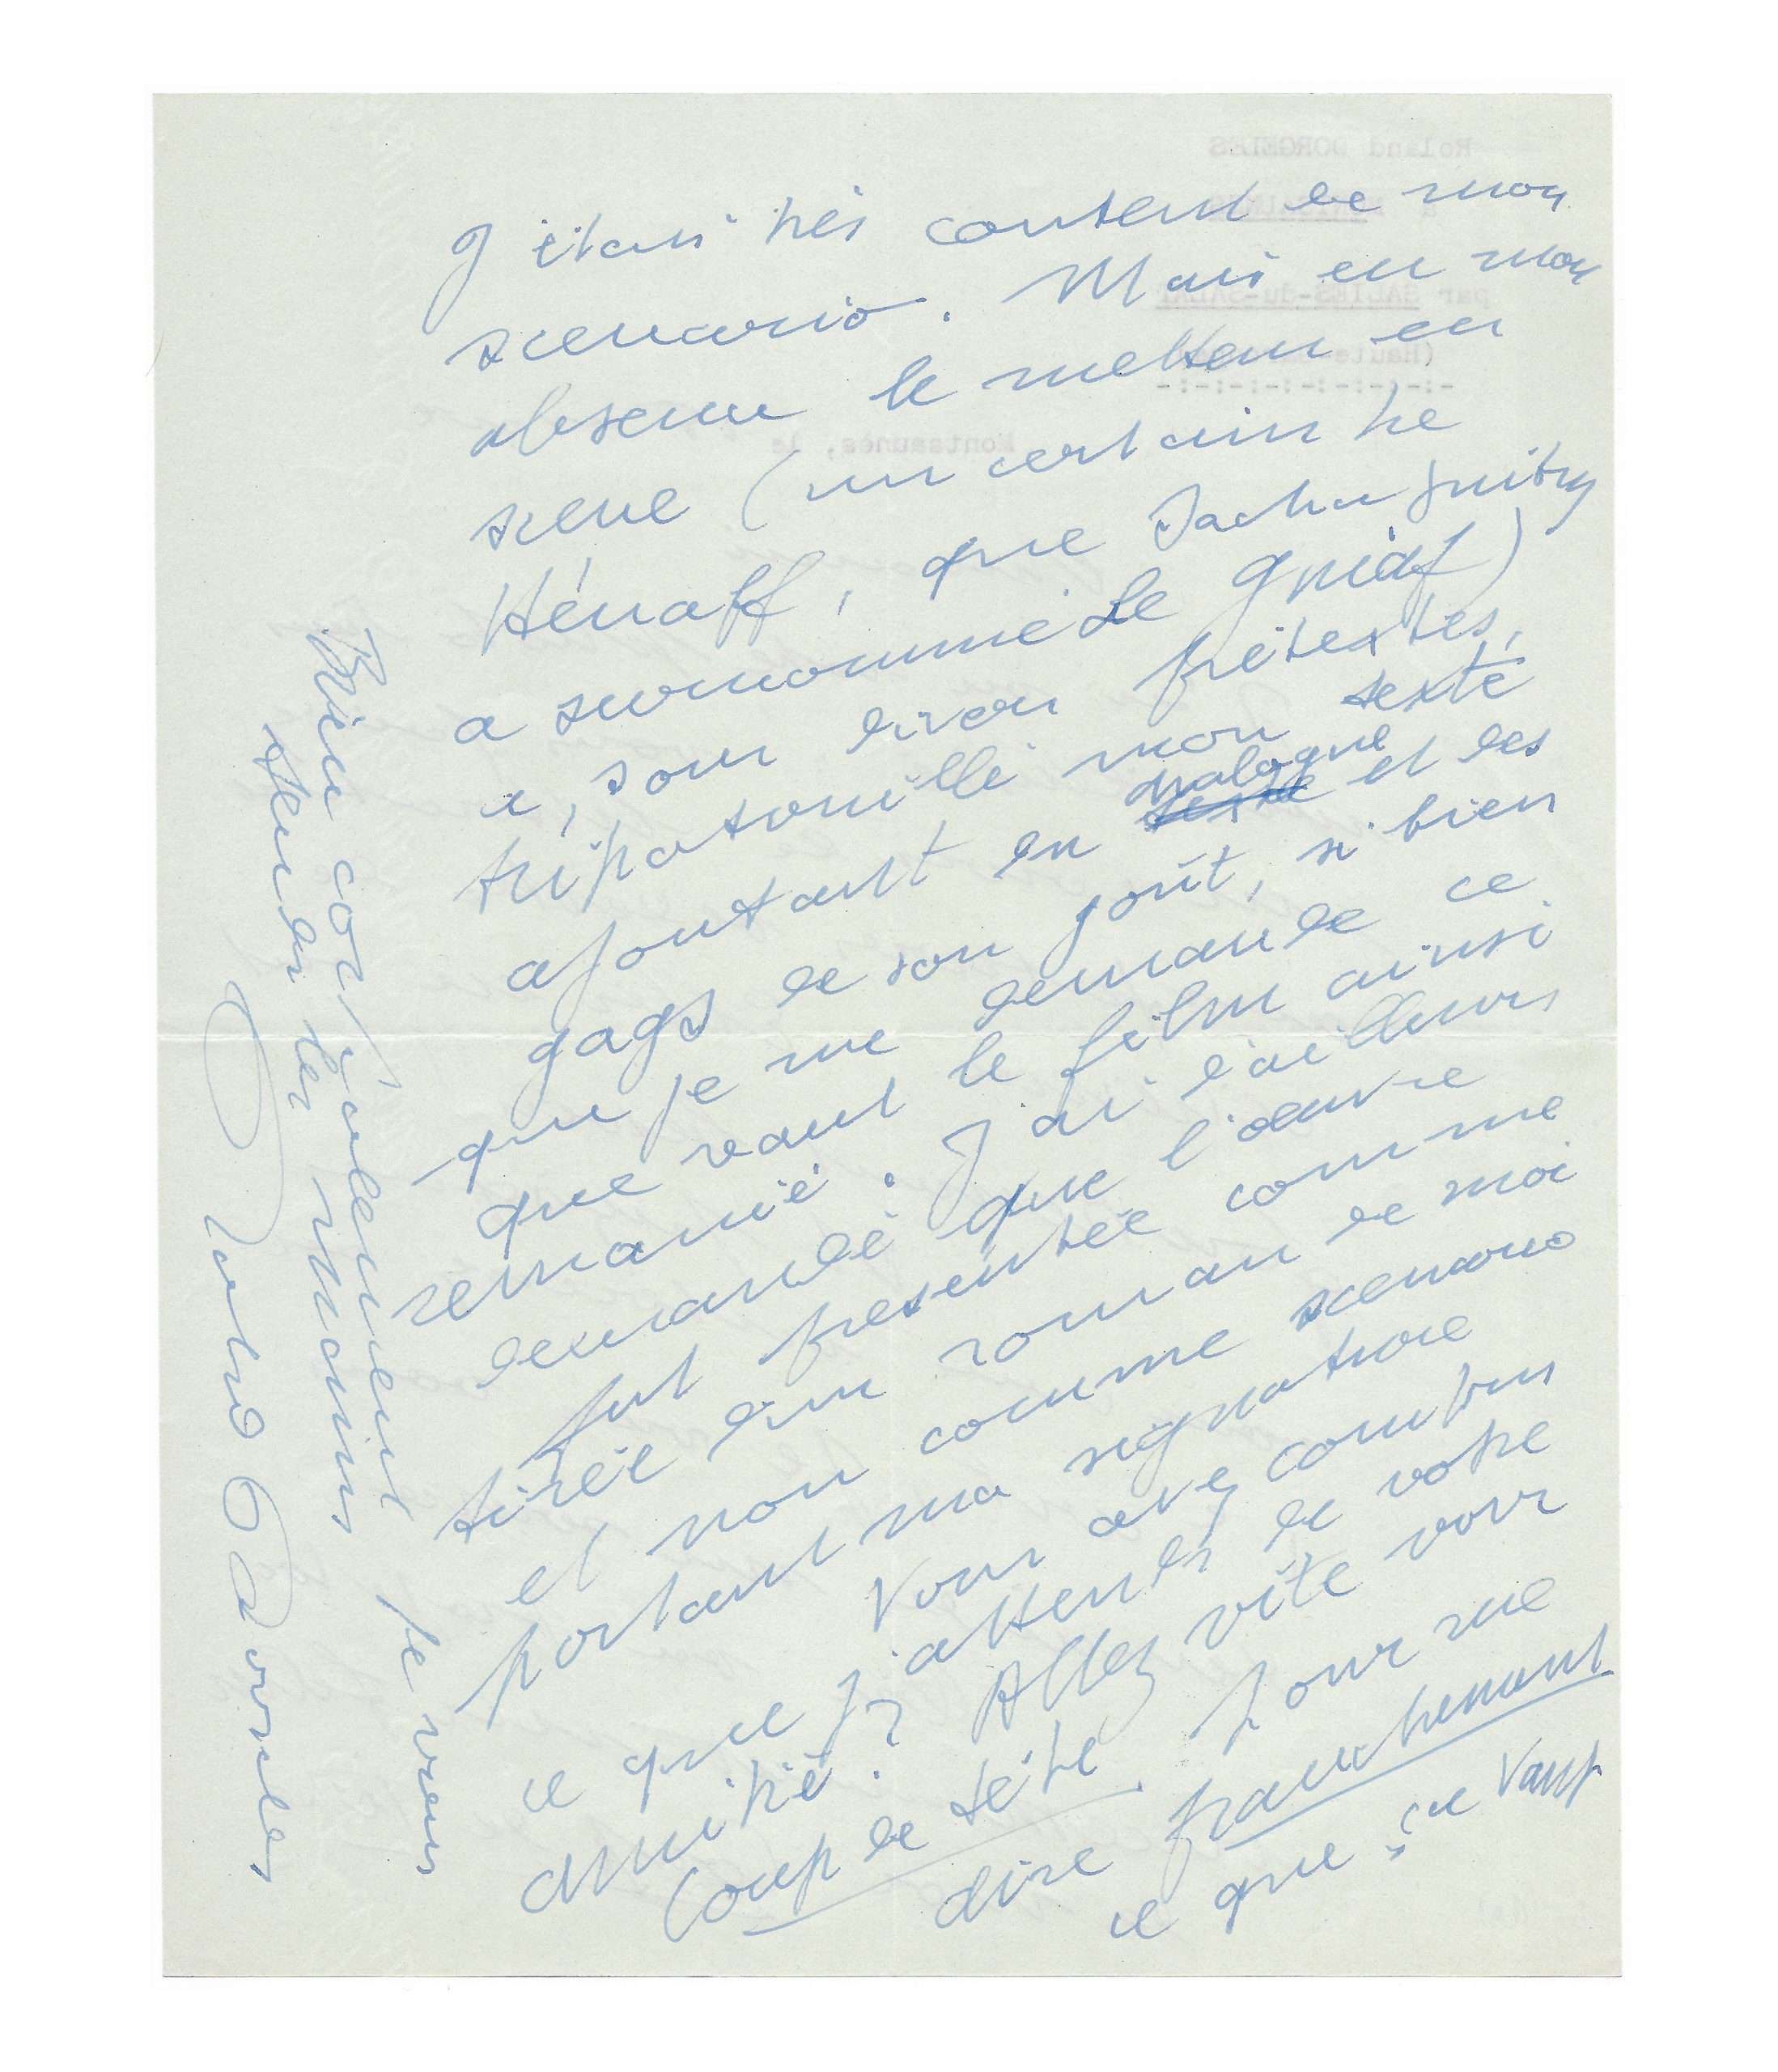 J'étais très content de mon
scenario. Mais en mon
absence le metteur en
scene (un certain Le
Hénaff, que Sacha Guitry
a surnommé Le Gnaf)
a, sous divers prétextes,
tripatouillé mon texte
ajoutant du texte dialogue et des
gags de son goût, si bien
que je me demande ce
que vaut le film ainsi
remanié. J'ai d'ailleurs
demandé que l'œuvre
fut presentée comme
tirée d'un roman de moi
et non comme scenario
portant ma signature
Vous avez compris
ce que j'attends de votre
amitié ? Allez vite voir
Coup de tête pour me
dire franchement
ce que ça vaut
Bien cordialement je vous
tends les mains
Roland Dorgelès
Roland DORGELES
par SALIES-du-SALAT
Montsaunès, le